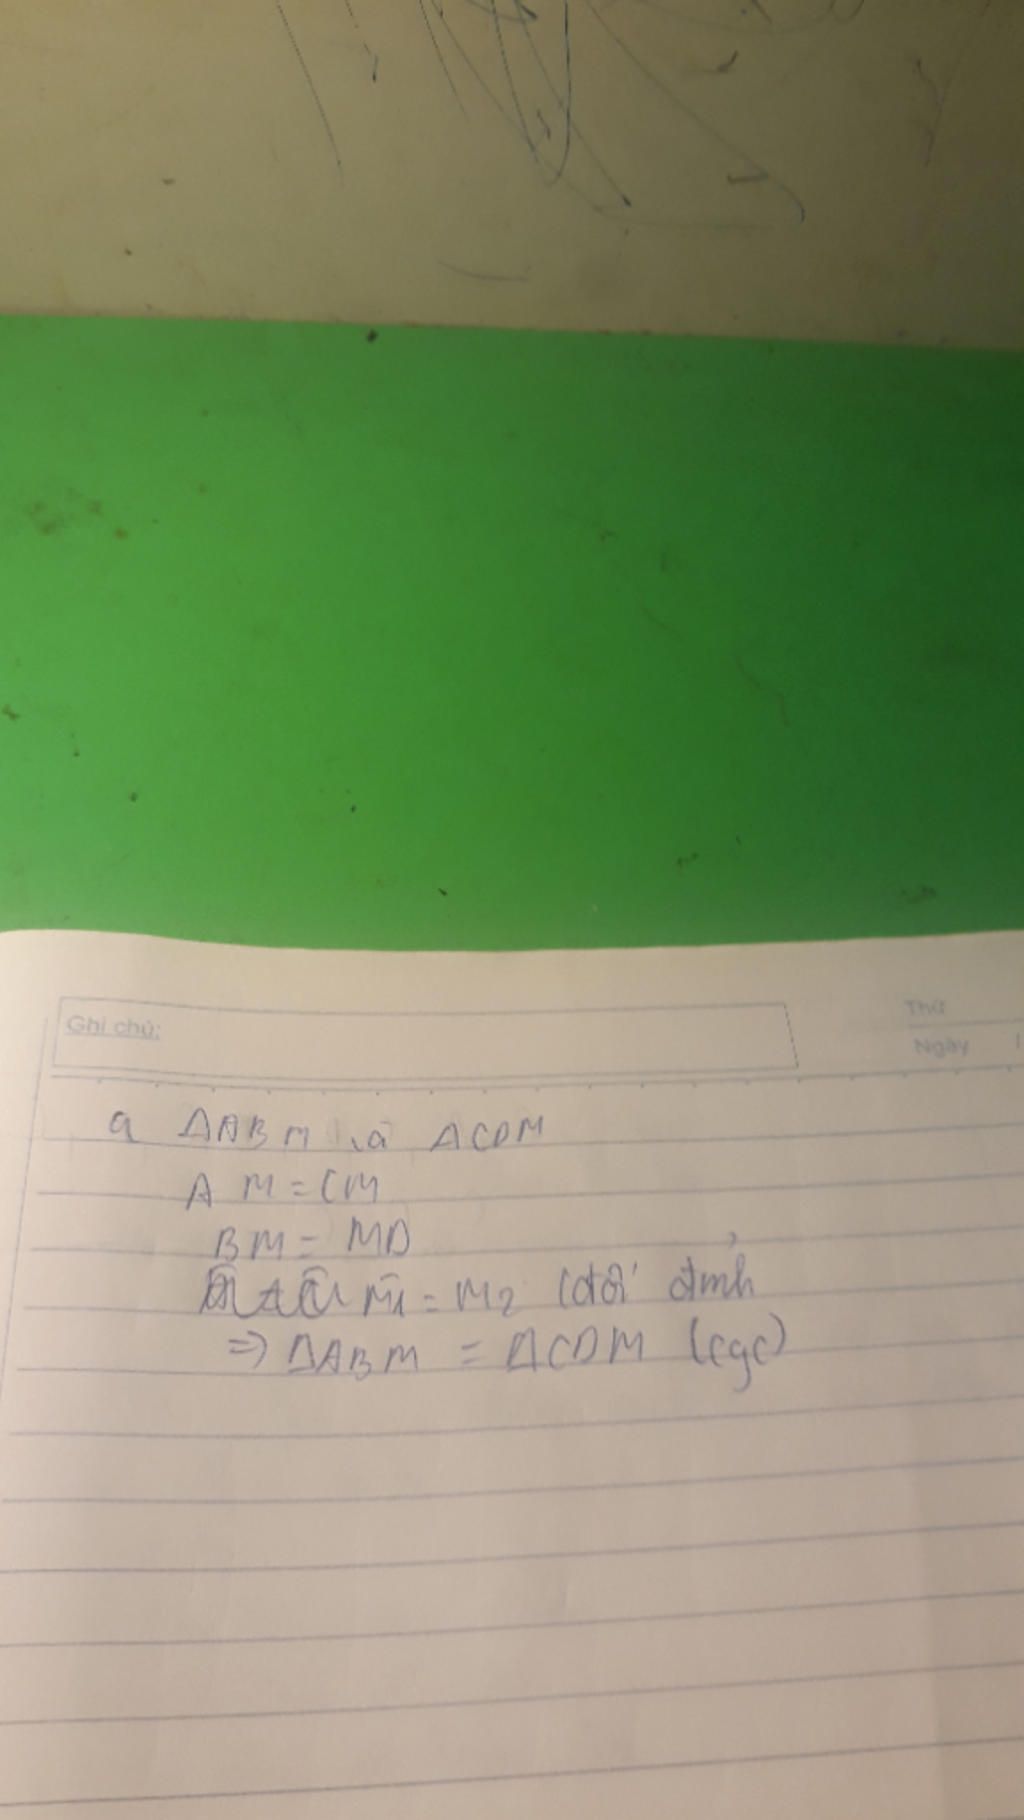 Ghi chú:
Thứ
Ngày /
a ΔABM và ΔCDM
AM = CM
BM = MD
M1 = M2 (đối đỉnh
=> ΔABM = ΔCDM (cgc)